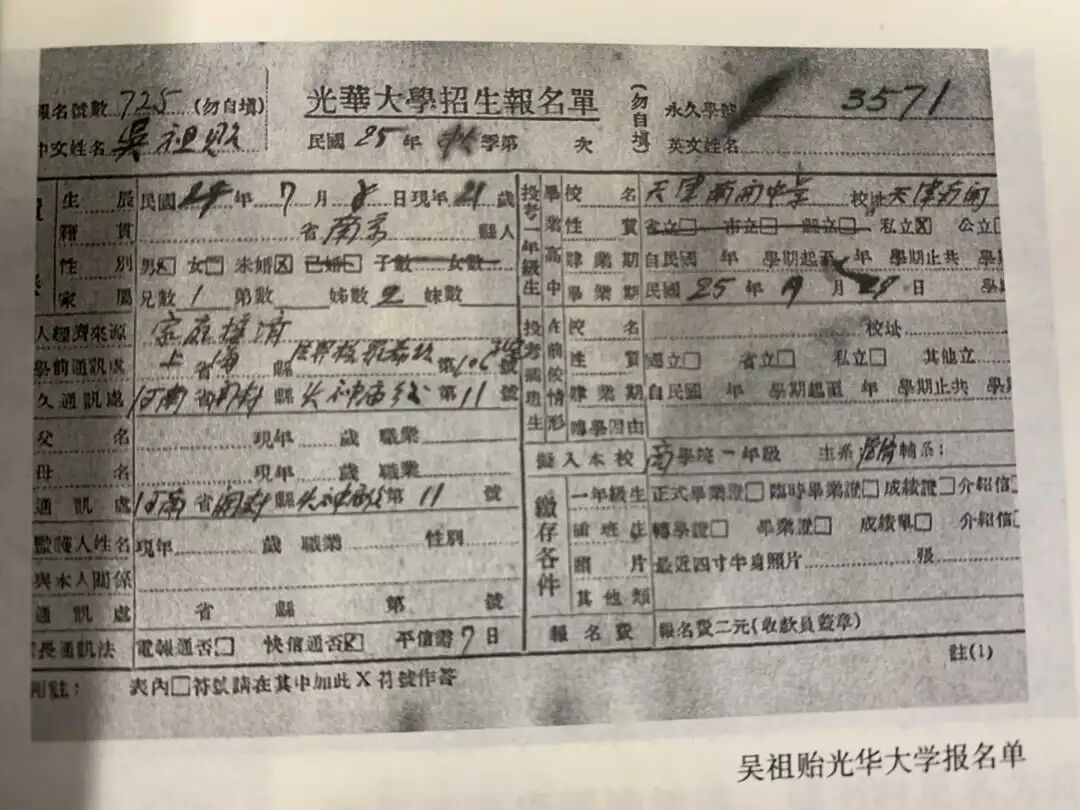 報名號數 725 (勿自填)
光華大學招生報名單
(勿自填)
永久學號 3571
中文姓名 吳祖貽
民國 25 年 秋 季第 次
英文姓名
生辰 民國 年 7 月 8 日現年 21 歲
籍貫 省 南京 縣人
性別 男☒ 女□ 未婚☒ 已婚□ 子數 女數
家屬 兄數 1 弟數 姊數 2 妹數
人經濟來源 家庭接濟
學前通訊處 上海 省 縣 第 106 號
久通訊處 河南 省 開封 縣 火神廟 第 11 號
父名 現年 歲 職業
母名 現年 歲 職業
通訊處 河南 省 開封 縣 火神廟 第 11 號
監護人姓名 現年 歲 職業 性別
與本人關係
通訊處 省 縣 第 號
家長通訊法 電報通否□ 快信通否☒ 平信需 7 日
附註: 表內□符號請在其中加此X符號作答
投考一年級生
畢業高中
校名 天津南開中學 校址 天津南開
性質 省立□ 市立□ 縣立□ 私立☒ 公立□
肄業期 自民國 年 學期起至 年 學期止共 學
畢業期 民國 25 年 月 日 學
投考插班生
在前校情形
校名 校址
性質 國立□ 省立□ 私立□ 其他立
肄業期 自民國 年 學期起至 年 學期止共 學
轉學因由
擬入本校 商 學院 一 年級 主系 輔系:
繳存各件
一年級生 正式畢業證□ 臨時畢業證□ 成績證□ 介紹信□
插班生 轉學證□ 畢業證□ 成績單□ 介紹信□
照片 最近四寸半身照片 張
其他類
報名費 報名費二元(收款員簽章)
註(1)
吴祖贻光华大学报名单